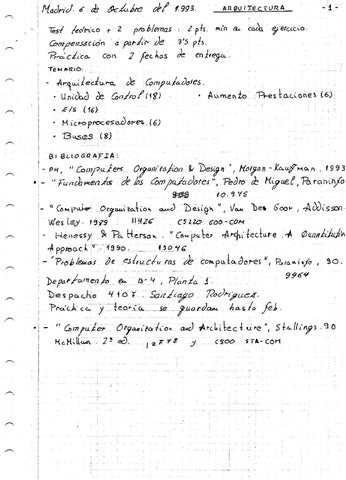 Madrid. 6 de Octubre del 1.993. ARQUITECTURA - 1 -
Test teórico + 2 problemas : 2 pts. min a cada ejercicio.
Compensación a partir de 3'5 pts.
Práctica con 2 fechos de entrega.
TEMARIO:
- Arquitectura de Computadores.
· Unidad de Control (18) · Aumento Prestaciones (6)
· E/S (16)
· Microprocesadores (6)
· Buses (8)
BIBLIOGRAFIA:
- PH, "Computers Organization & Design", Morgan-Kauffman. 1993
- "Fundamentos de los Computadores", Pedro de Miguel, Paraninfo
10.945
- "Computer Organization and Design", Van De Goor, Addisson
Wesley. 1989 11426 CS220 GOO-COM
- Henessy & Patterson. "Computer Architecture. A Quantitativ
Approach". 1990. 13046
- "Problemas de estructuras de computadores", Paraninfo, 90.
9964
Departamento en B-4, Planta 1.
Despacho 4107. Santiago Rodríguez.
Práctica y teoría se guardan hasta feb.
- "Computer Organization and Architecture", Stallings. 90
McMillan. 2ª ed. y C500 STA-COM